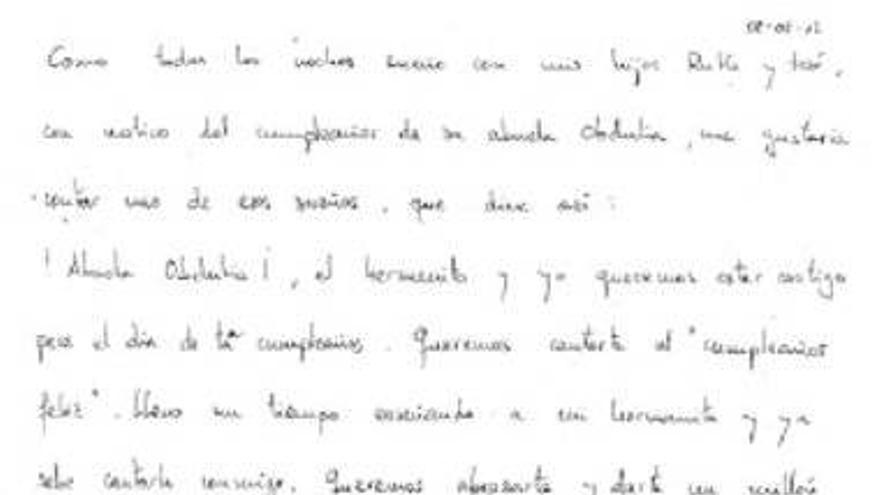 Como todas las noches sueño con mis hijos Ruth y José,
con motivo del cumpleaños de su abuela Obdulia, me gustaria
contar uno de esos sueños, que dice así:
! Abuela Obdulia !, el hermanito y yo queremos estar contigo
para el dia de tu cumpleaños. Queremos cantarte el "cumpleaños
feliz". Llevo un tiempo enseñando a mi hermanito y ya
sabe cantarla conmigo. Queremos abrazarte y darte un millón